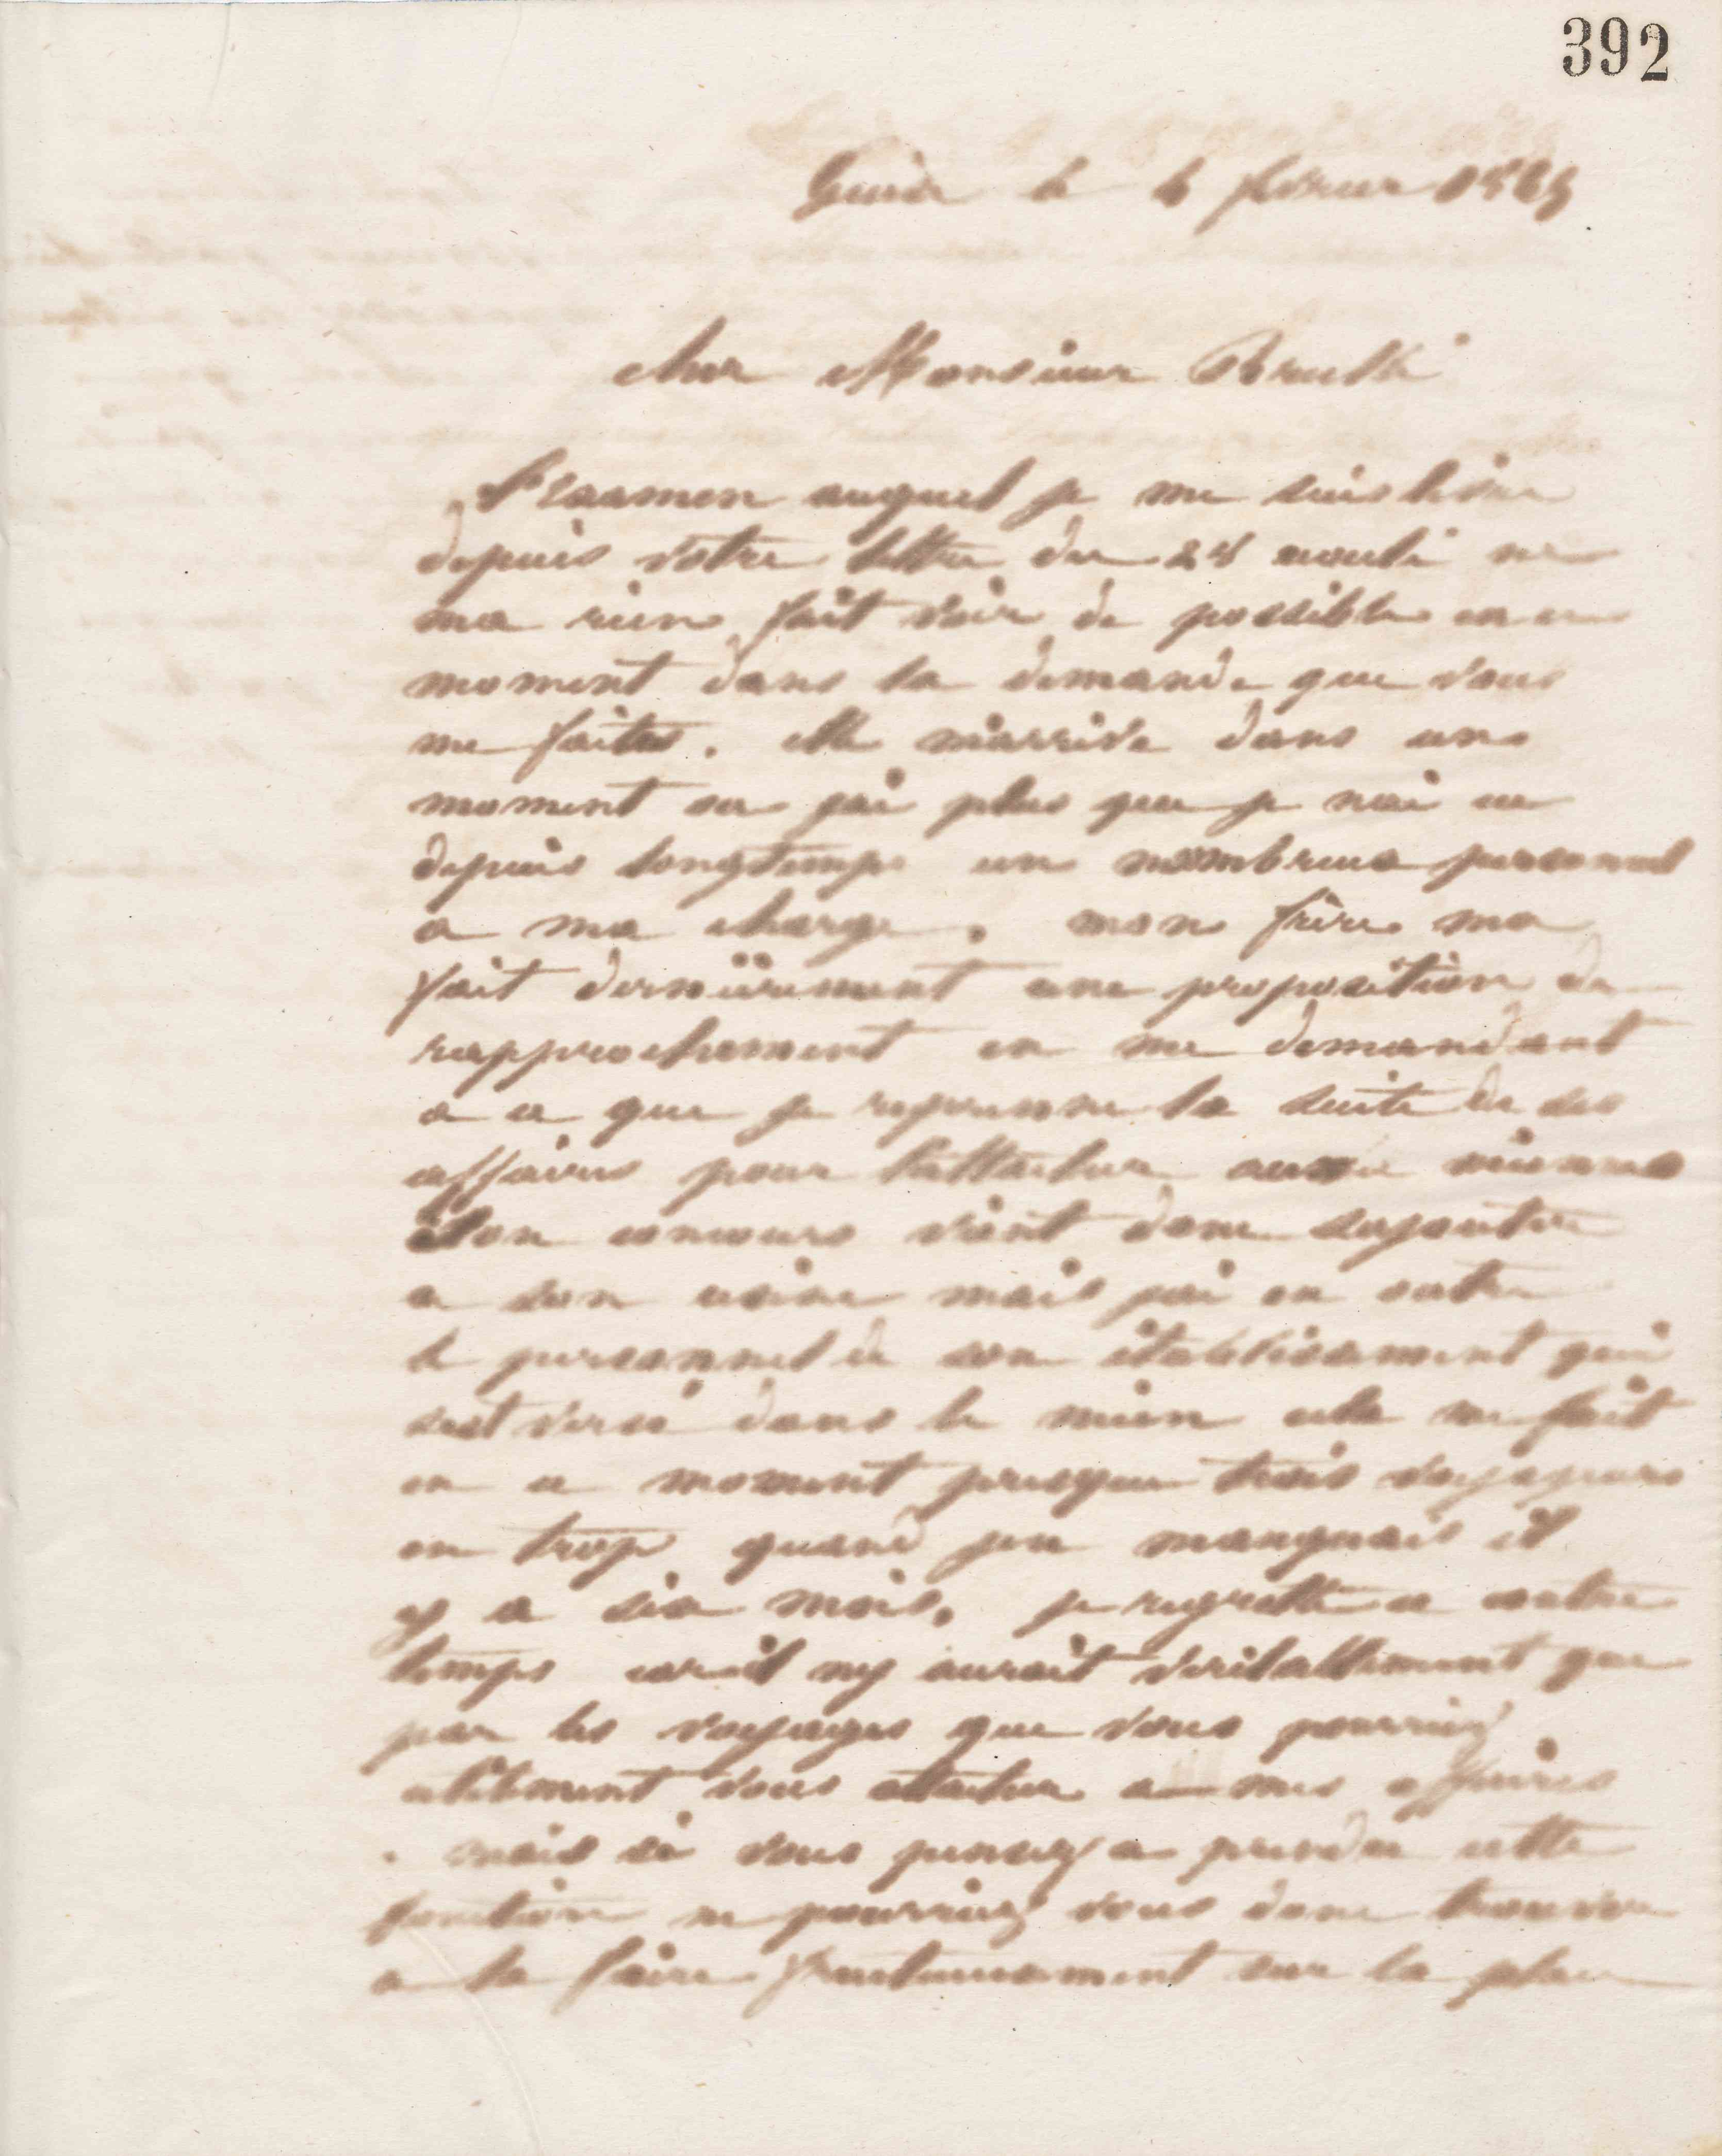 392
Guise le 4 février 1865
cher Monsieur
L'examen auquel je me suis livré
depuis votre lettre du 28 écoulé ne
ma rien fait voir de possible en ce
moment dans la demande que vous
me faites. elle m'arrive dans un
moment ou j'ai plus que je n'ai eu
depuis longtemps un nombreux personnel
a ma charge. mon frère ma
fait dernièrement une proposition de
rapprochement en me demandant
a ce que je reprenne la suite de ses
affaires pour l'attacher aux miennes
son concours vient donc sajouter
a son usine mais j'ai en outre
le personnel de son établissement qui
sest versé dans le mien cela me fait
en ce moment presque trois voyageurs
en trop quand jen manquais il
y a six mois. je regrette ce contre
temps car il ny aurait veritablement que
par les voyages que vous pourriez
utilement vous attacher a mes affaires
. mais si vous pensez a prendre cette
fonction ne pourriez vous donc trouver
a la faire fructueusement sur la place